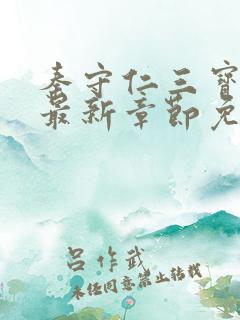 秦守仁三宝
最新章节免
吕作武
未经同意禁止转载